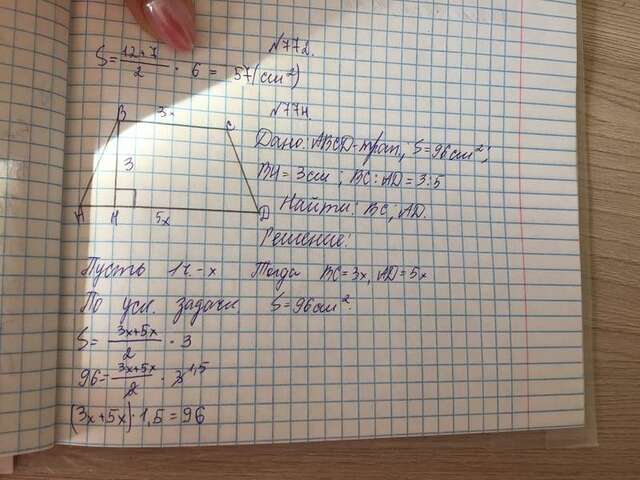 №772.
S = 12+7/2 · 6 = 57(см²)
№774.
B 3x C
3
A H 5x D
Дано: ABCD-трап, S=96см²;
BH = 3см; BC:AD=3:5
Найти: BC; AD.
Решение:
Пусть 1ч. - x Тогда BC=3x, AD=5x
По усл. задачи S=96см².
S= 3x+5x/2 · 3
96= 3x+5x/2 · 3 1,5
(3x+5x)·1,5=96